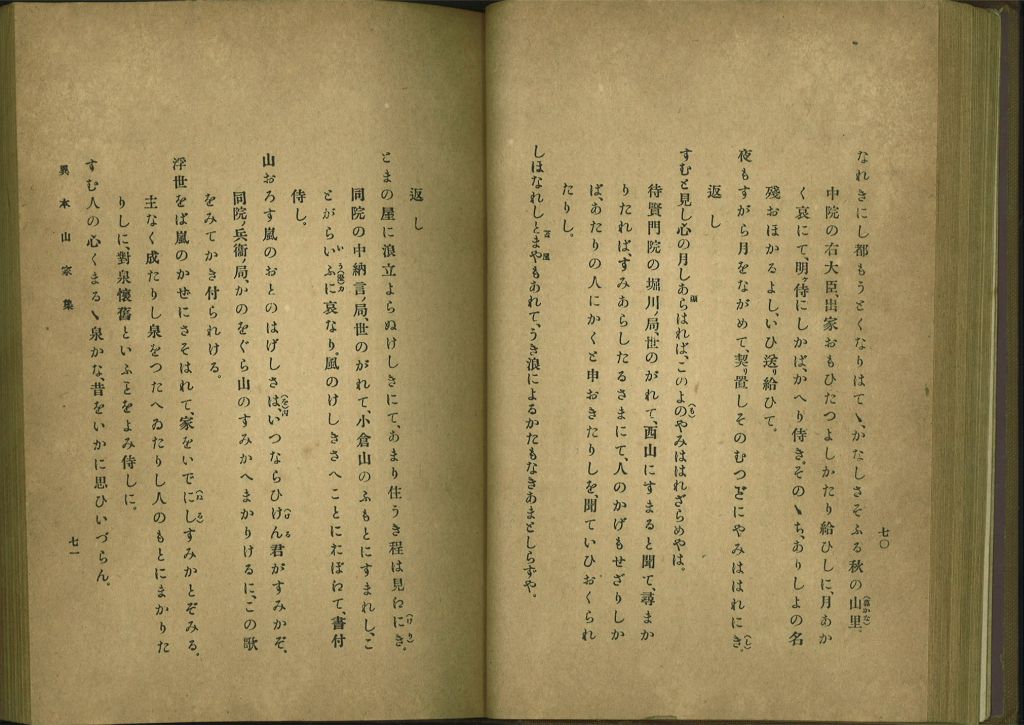 なれきにし都もうとくなりはてゝ、かなしさそふる秋の山里
中院の右大臣、出家おもひたつよしかたり給ひしに、月あか
く哀にて、明ヶ侍にしかば、かへり侍き。そのゝち、ありしよの名
殘おほかるよし、いひ送リ給ひて。
夜もすがら月をながめて、契リ置しそのむつどにやみははれにき。
返し
すむと見し心の月しあらはれば、このよのやみははれざらめやは。
待賢門院の堀川ノ局、世のがれて、西山にすまると聞て、尋まか
りたれば、すみあらしたるさまにて、人のかげもせざりしか
ば、あたりの人にかくと申おきたりしを、聞ていひおくられ
たりし。
しほなれしとまやもあれて、うき浪によるかたもなきあまとしらずや。
七〇
返し
とまの屋に浪立よらぬけしきにて、あまり住うき程は見ゆにき。
同院の中納言ノ局、世のがれて、小倉山のふもとにすまれし、こ
とがらいふに哀なり。風のけしきさへことにおぼえて、書付
侍し。
山おろす嵐のおとのはげしさは、いつならひけん君がすみかぞ、
同院ノ兵衞ノ局、かのをぐら山のすみかへまかりけるに、この歌
をみてかき付られける。
浮世をば嵐のかせにさそはれて、家をいでにしすみかとぞみる。
主なく成たりし泉をつたへゐたりし人のもとにまかりた
りしに、對泉懷舊といふことをよみ侍しに。
すむ人の心くまるゝ泉かな、昔をいかに思ひいづらん。
異本山家集
七一